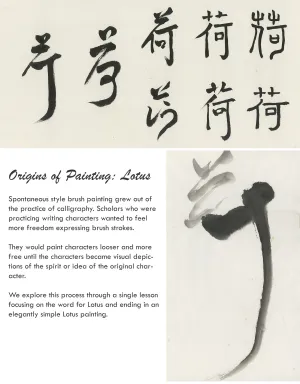 荷 荷 荷
荷 荷
Origins of Painting: Lotus
Spontaneous style brush painting grew out of
the practice of calligraphy. Scholars who were
practicing writing characters wanted to feel
more freedom expressing brush strokes.
They would paint characters looser and more
free until the characters became visual depic-
tions of the spirit or idea of the original char-
acter.
We explore this process through a single lesson
focusing on the word for Lotus and ending in an
elegantly simple Lotus painting.